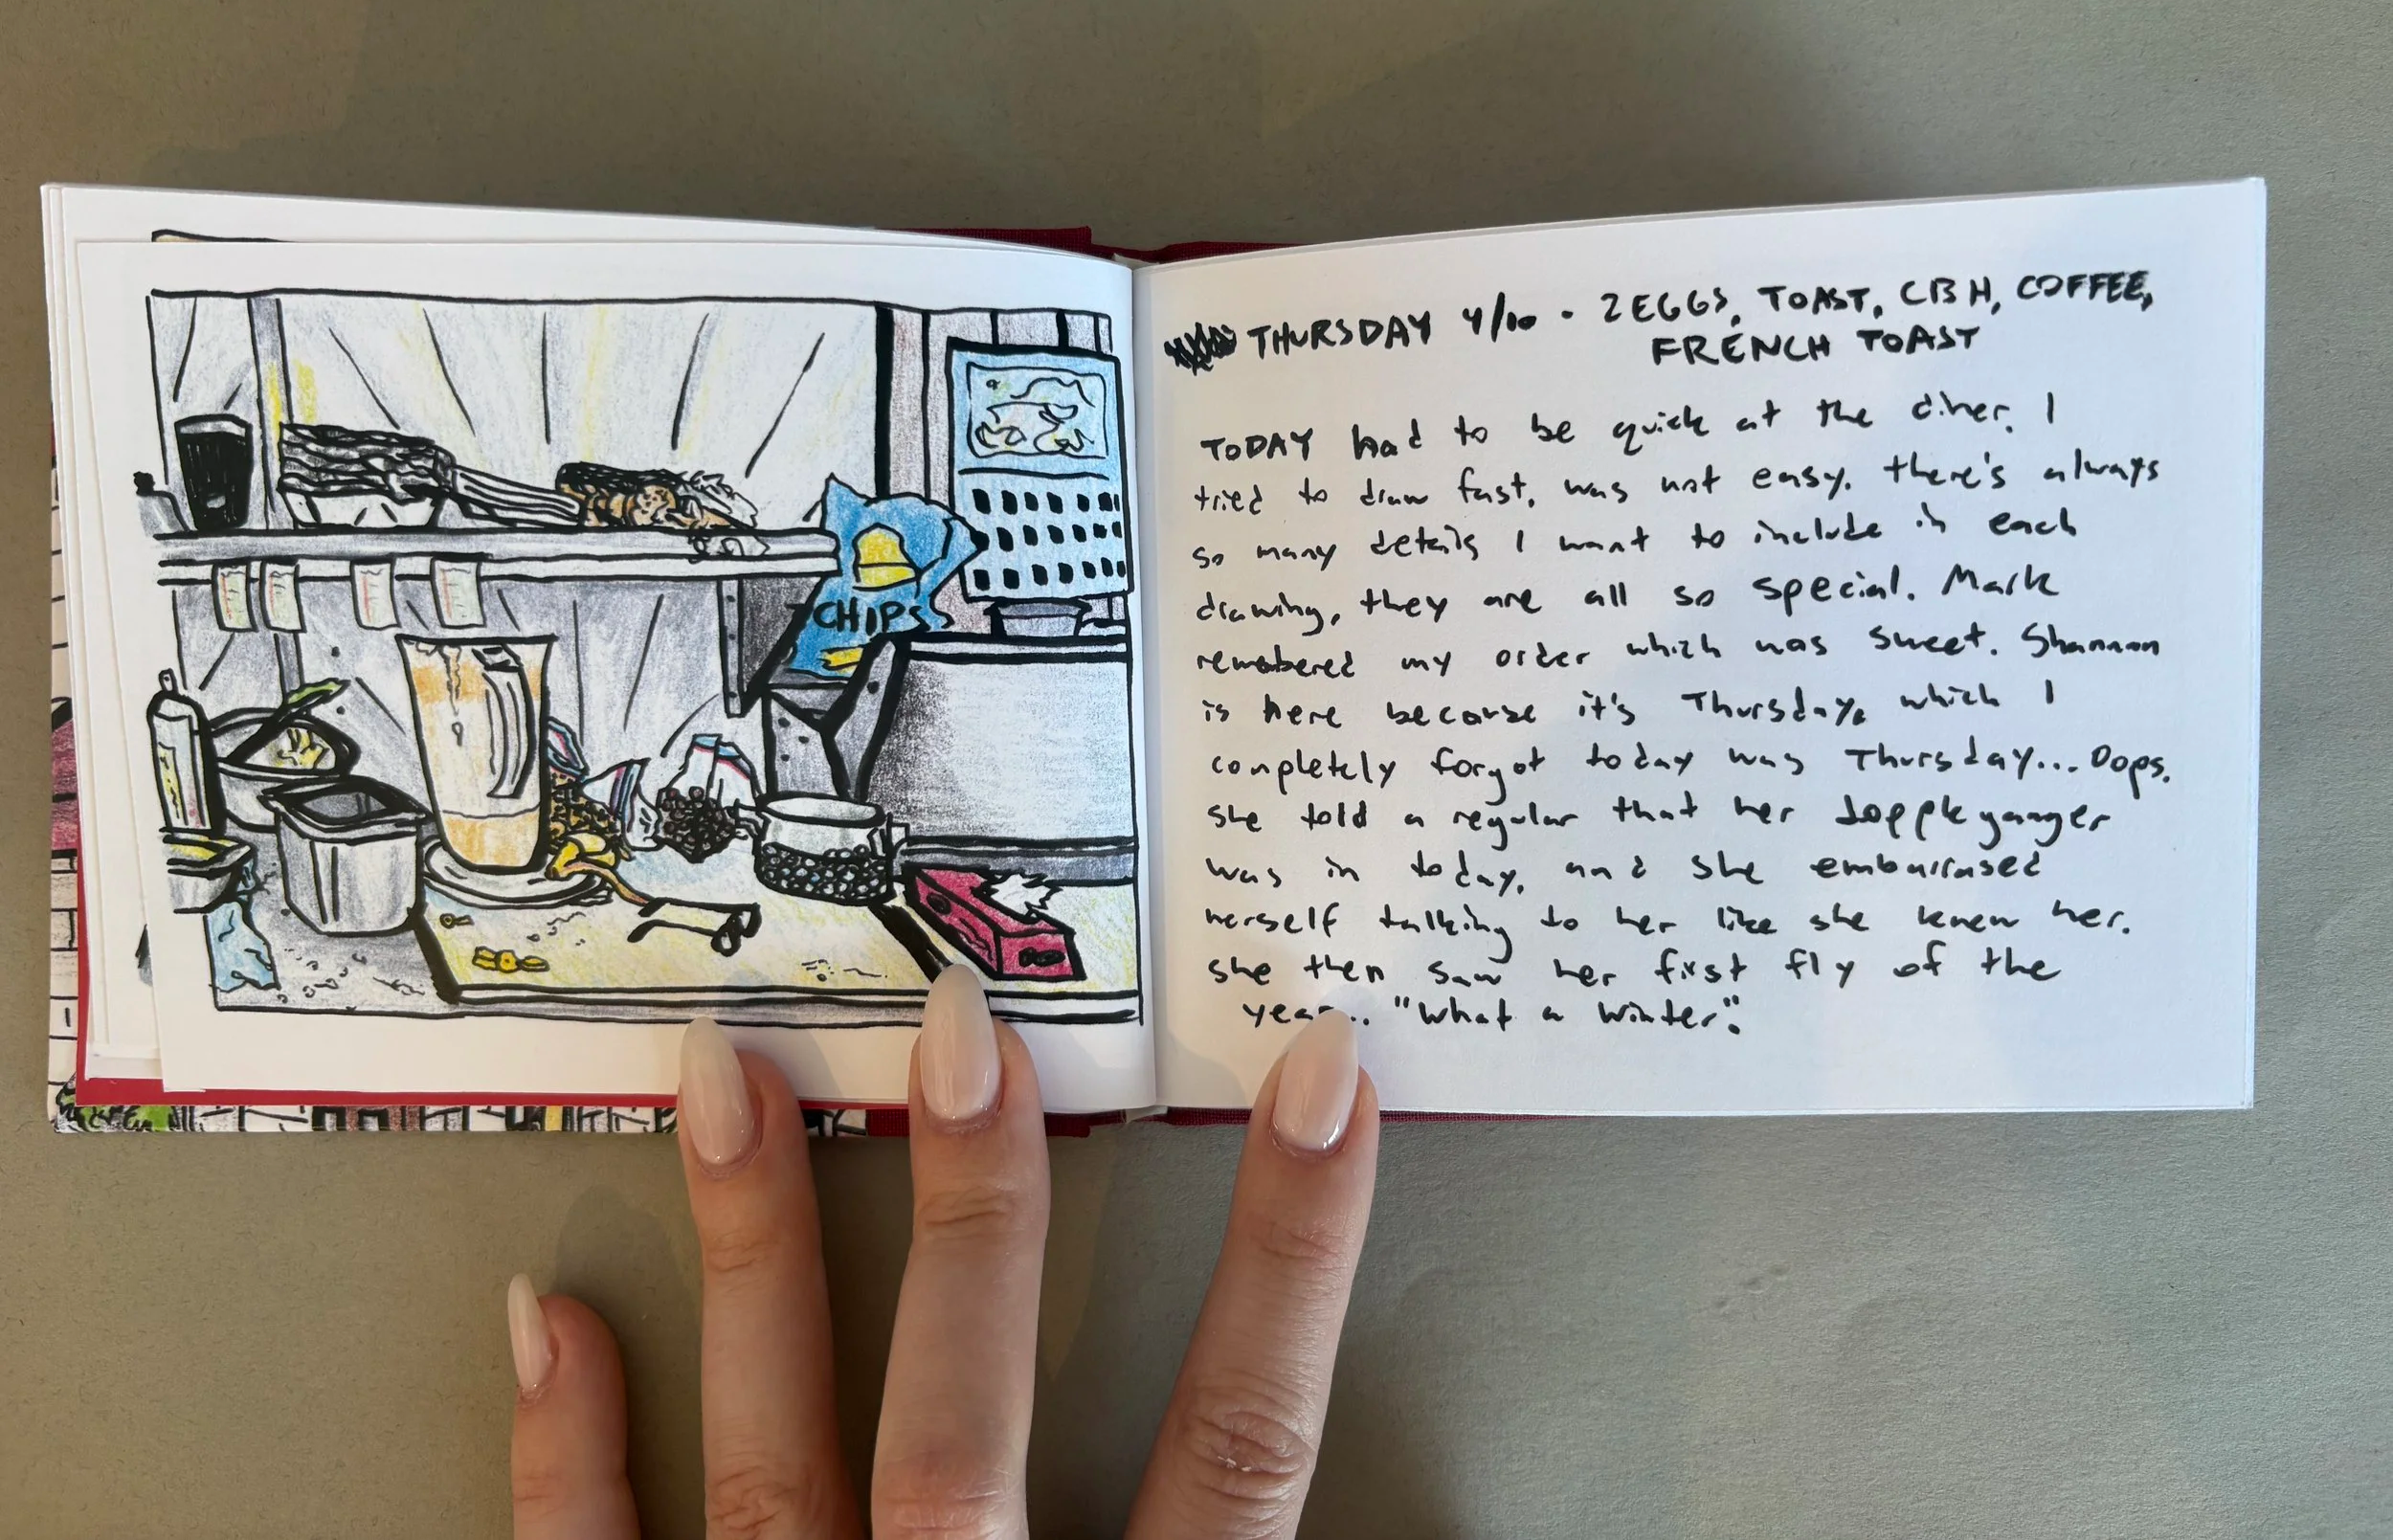 CHIPS
THURSDAY 4/10 - 2 EGGS, TOAST, CBH, COFFEE,
FRENCH TOAST
TODAY had to be quick at the diner. I
tried to draw fast, was not easy. there's always
so many details I want to include in each
drawing, they are all so special. Mark
remebered my order which was sweet. Shannon
is here because it's Thursday, which I
completely forgot today was Thursday... Oops.
she told a regular that her doppleganger
was in today, and she embarrased
herself talking to her like she knew her.
she then saw her first fly of the
year... "what a winter".